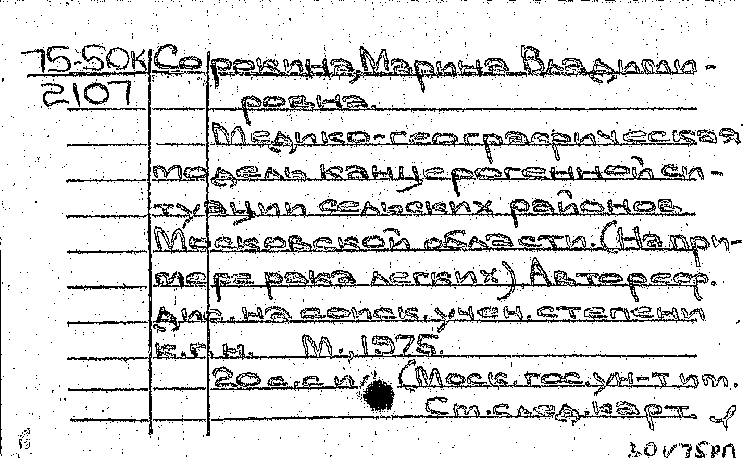 75-50К Сорокина, Марина Владими-
2107 ровна.
Медико-географическая
модель канцерогенной си-
туации сельских районов
Московской области. (На при-
мере рака легких). Автореф.
дис. на соиск. учен. степени
к.г.н. М., 1975.
20 с. с ил. (Моск. гос. ун-т им.
См. след. карт.